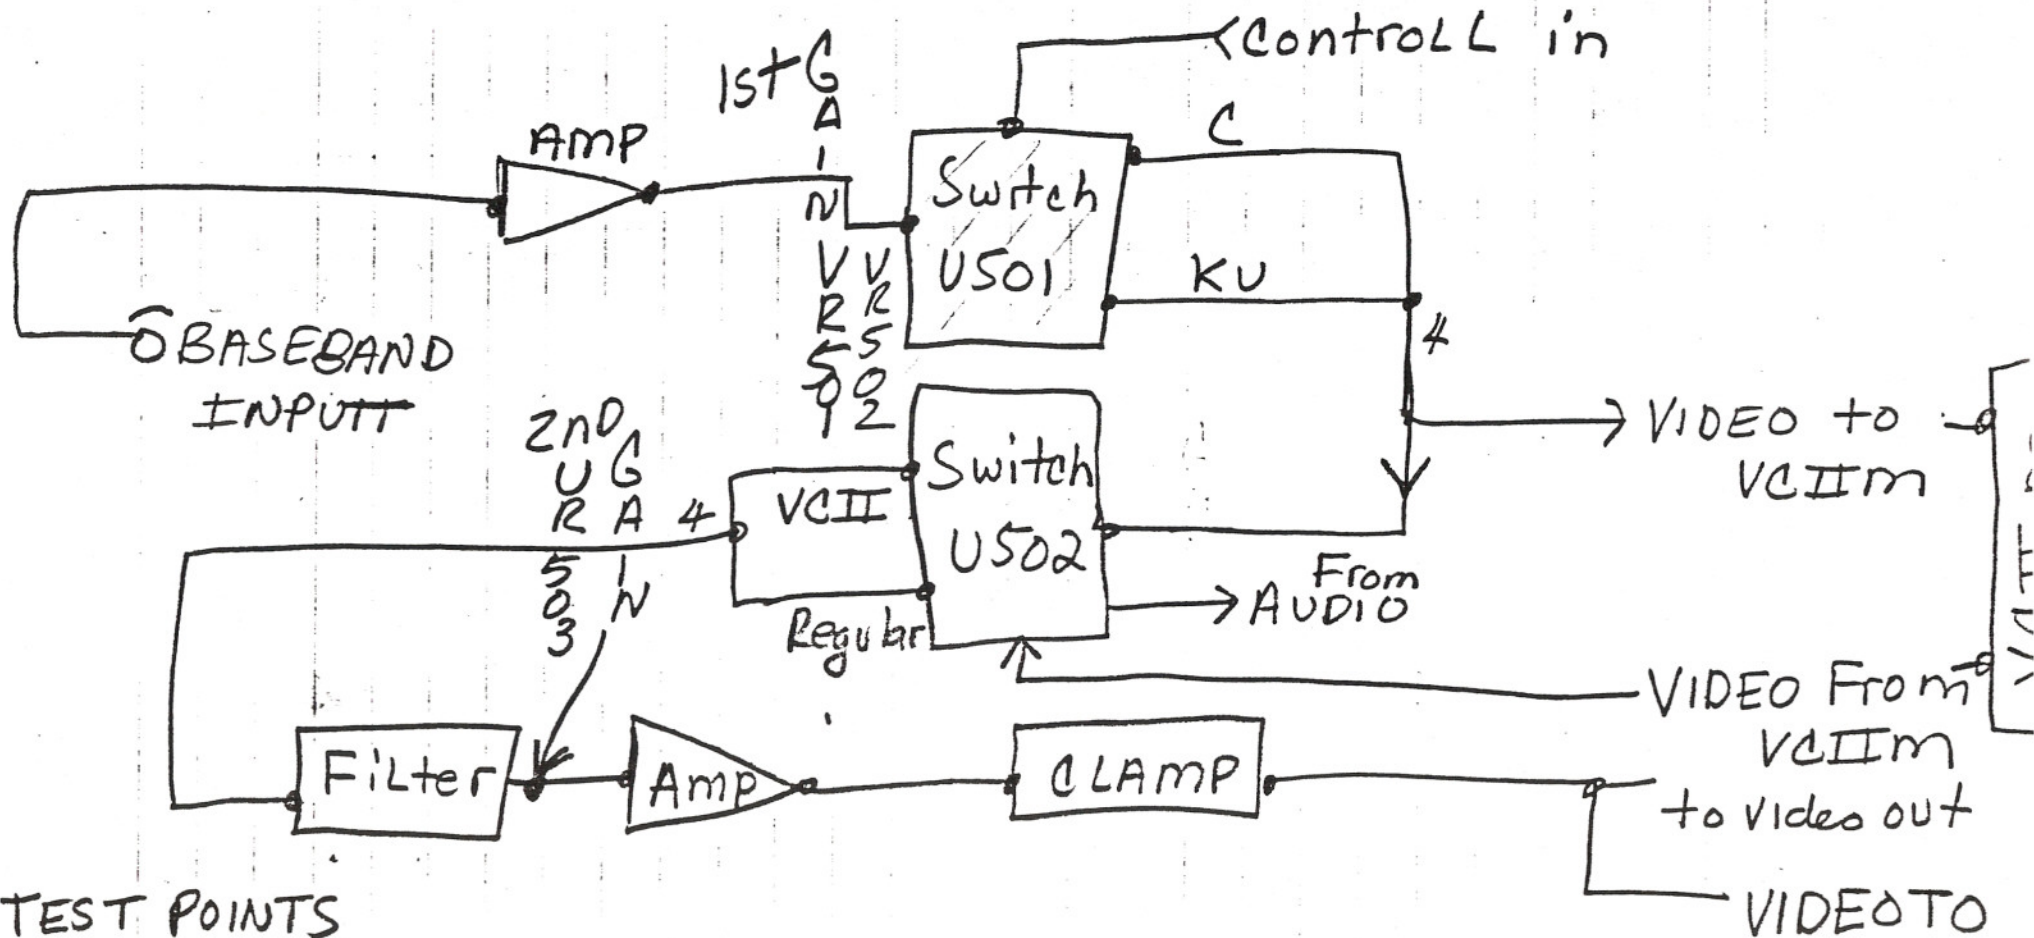 Controll in
1st GAIN
AMP
C
Switch
U501
KU
VR501
VR502
4
BASEBAND
INPUT
VIDEO to
VCIIM
2nD GAIN
VR503
4
VCII
Switch
U502
Regular
From
AUDIO
VIDEO From
VCIIM
Filter
Amp
CLAMP
to video out
VIDEO TO
TEST POINTS